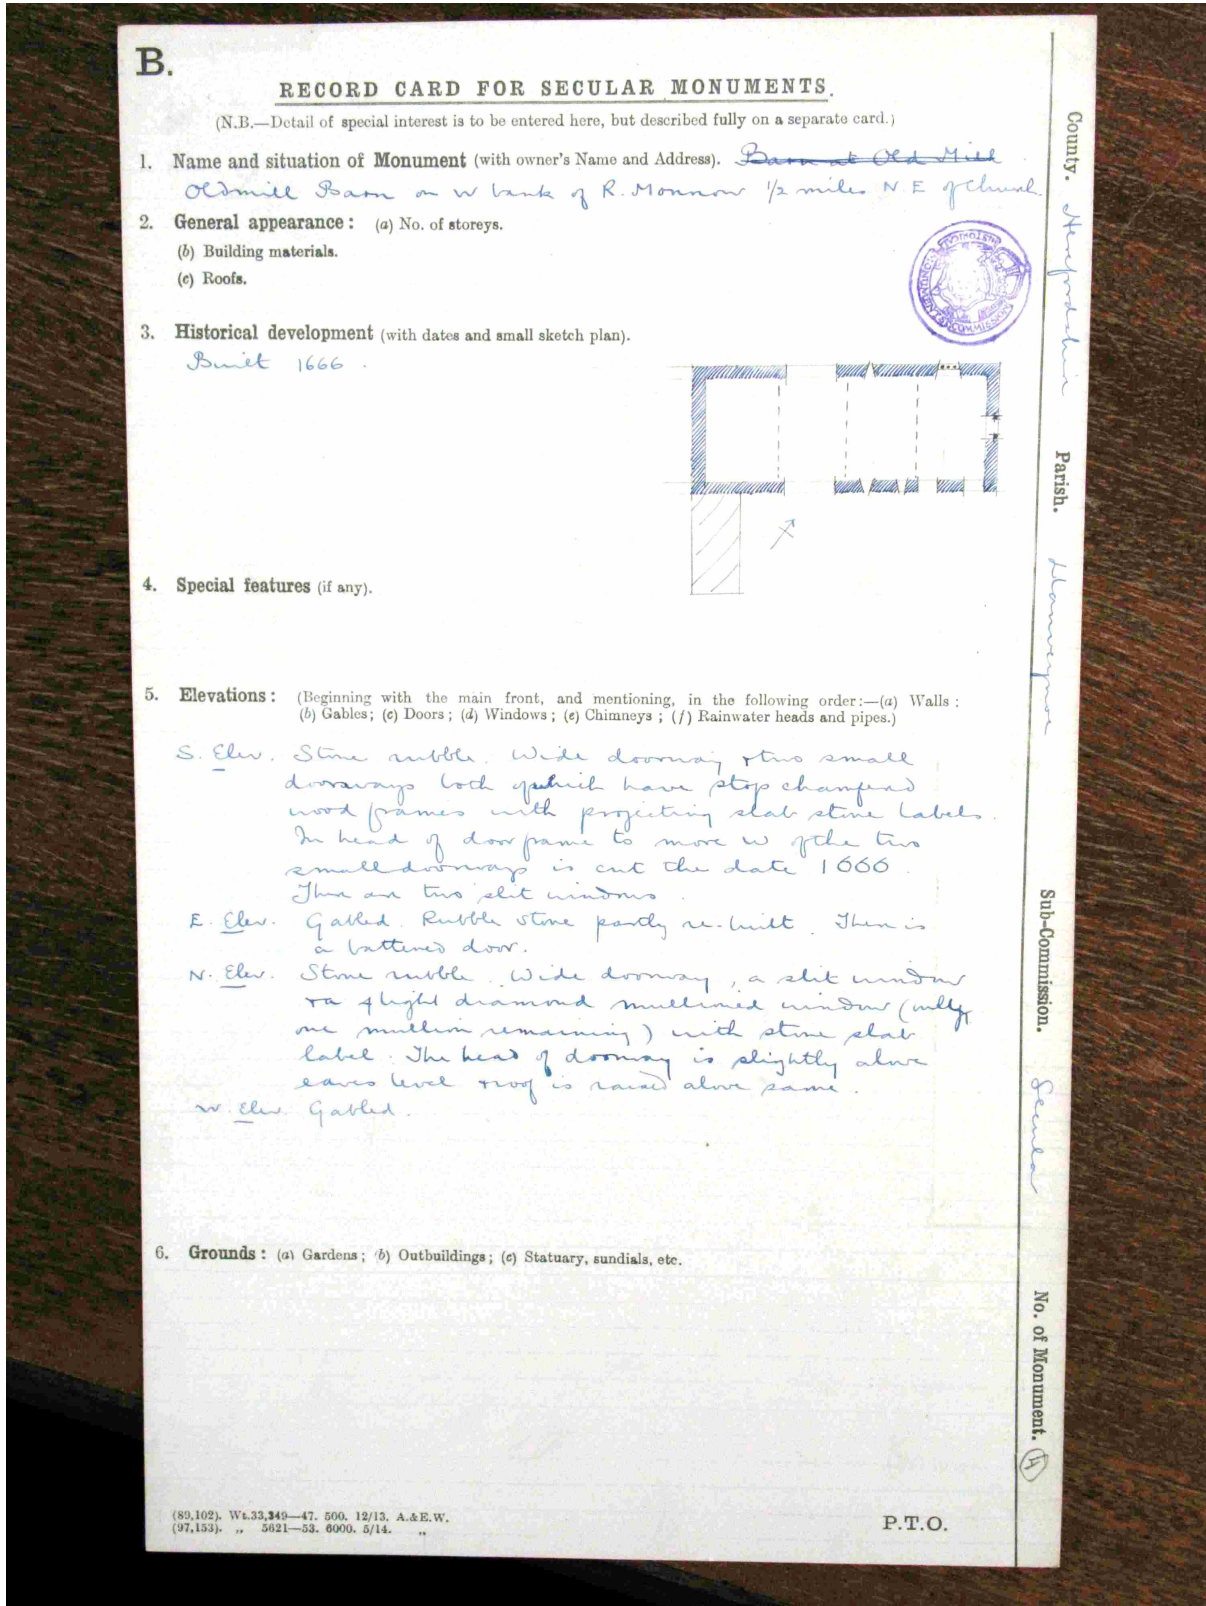 B.
RECORD CARD FOR SECULAR MONUMENTS.
(N.B.—Detail of special interest is to be entered here, but described fully on a separate card.)
1. Name and situation of Monument (with owner's Name and Address). Barn at Old Mill
Oldmill Barn on W bank of R. Monnow 1/2 miles N.E of Church.
2. General appearance: (a) No. of storeys.
(b) Building materials.
(c) Roofs.
3. Historical development (with dates and small sketch plan).
Built 1666.
4. Special features (if any).
5. Elevations: (Beginning with the main front, and mentioning, in the following order:—(a) Walls:
(b) Gables; (c) Doors; (d) Windows; (e) Chimneys; (f) Rainwater heads and pipes.)
S. Elev. Stone rubble. Wide doorway & two small
doorways both of which have stop chamferd
wood frames with projecting slab stone labels.
In head of door frame to more W of the two
small doorways is cut the date 1666.
There are two slit windows.
E. Elev. Gabled. Rubble stone partly re-built. There is
a battened door.
N. Elev. Stone rubble. Wide doorway, a slit window
& a 4 light diamond mullioned window (only
one mullion remaining) with stone slab
label. The head of doorway is slightly above
eaves level & roof is raised above same.
W. Elev. Gabled.
6. Grounds: (a) Gardens; (b) Outbuildings; (c) Statuary, sundials, etc.
(89,102). Wt.33,349—47. 500. 12/13. A.&E.W.
(97,153). „ 5621—53. 6000. 5/14. „
P.T.O.
County. Herefordshire
Parish. Llanveynoe
Sub-Commission. Secular
No. of Monument. (4)
HISTORICAL MONUMENTS COMMISSION